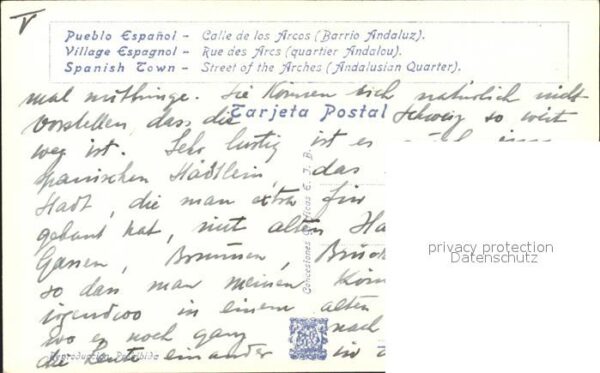 V
Pueblo Español - Calle de los Arcos (Barrio Andaluz).
Village Espagnol - Rue des Arcs (quartier Andalou).
Spanish Town - Street of the Arches (Andalusian Quarter).
mal mitbringe. Sie können sich natürlich nicht
Tarjeta Postal
vorstellen, dass die Schweiz so weit
weg ist. Sehr lustig ist es
spanischen Städtlein, das
Stadt, die man extra für
gebaut hat, mit alten
Gassen, Brunnen, Brück
so dass man meinen kön
irgendwo in einem alten
wo es noch ganz nach
die Leute einander in
Concesiones Gráficas E. J. B.
Reproducción Prohibida
privacy protection
Datenschutz